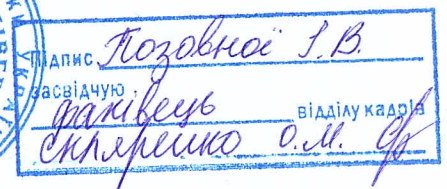 Підпис Позовної І.В.
засвідчую
фахівець відділу кадрів
Скляренко О.М.